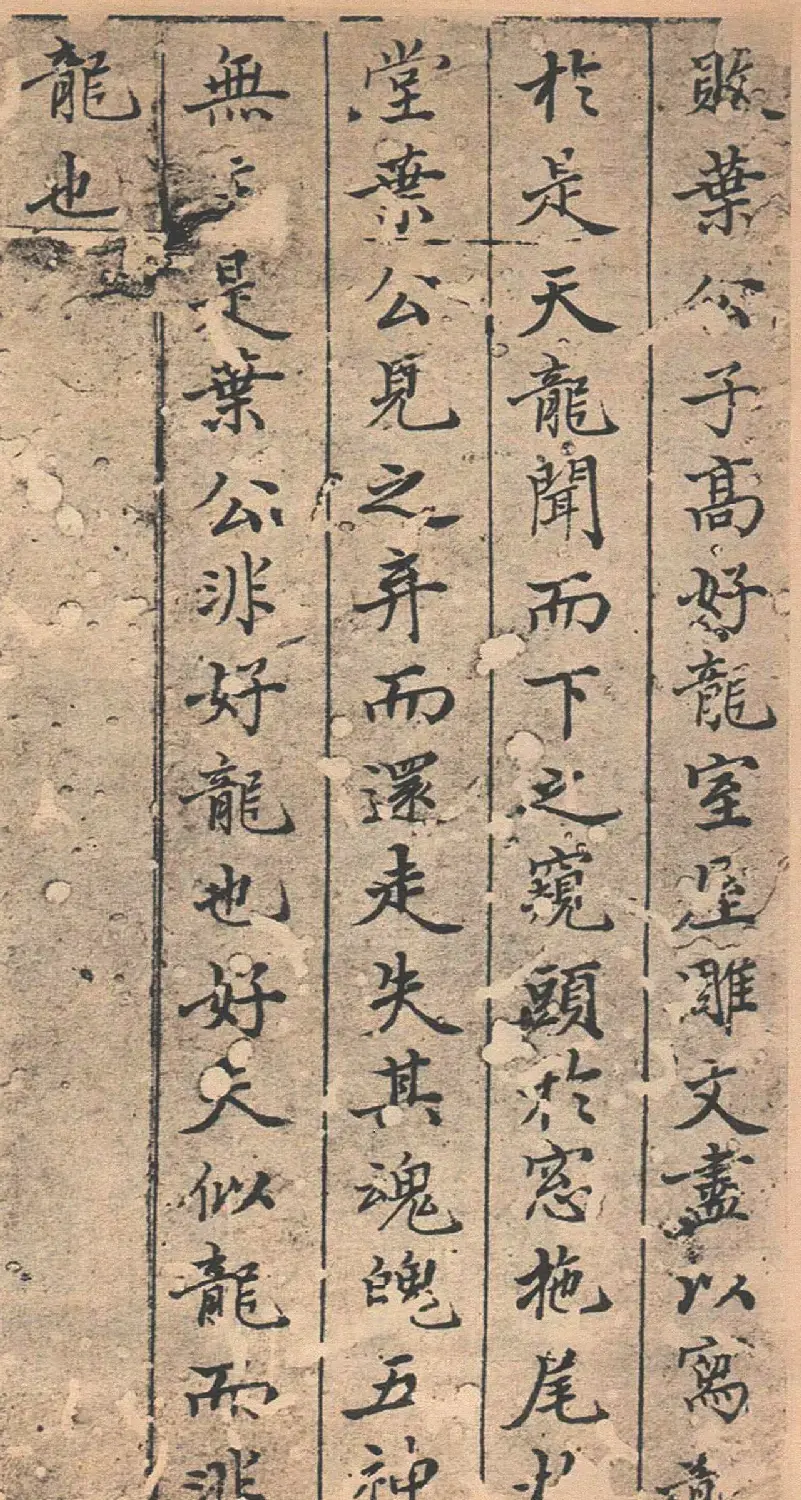 敢葉公子高好龍室屋雕文盡以寫龍
於是天龍聞而下之窺頭於窓拖尾於
堂葉公見之弃而還走失其魂魄五神
無主是葉公非好龍也好夫似龍而非
龍也